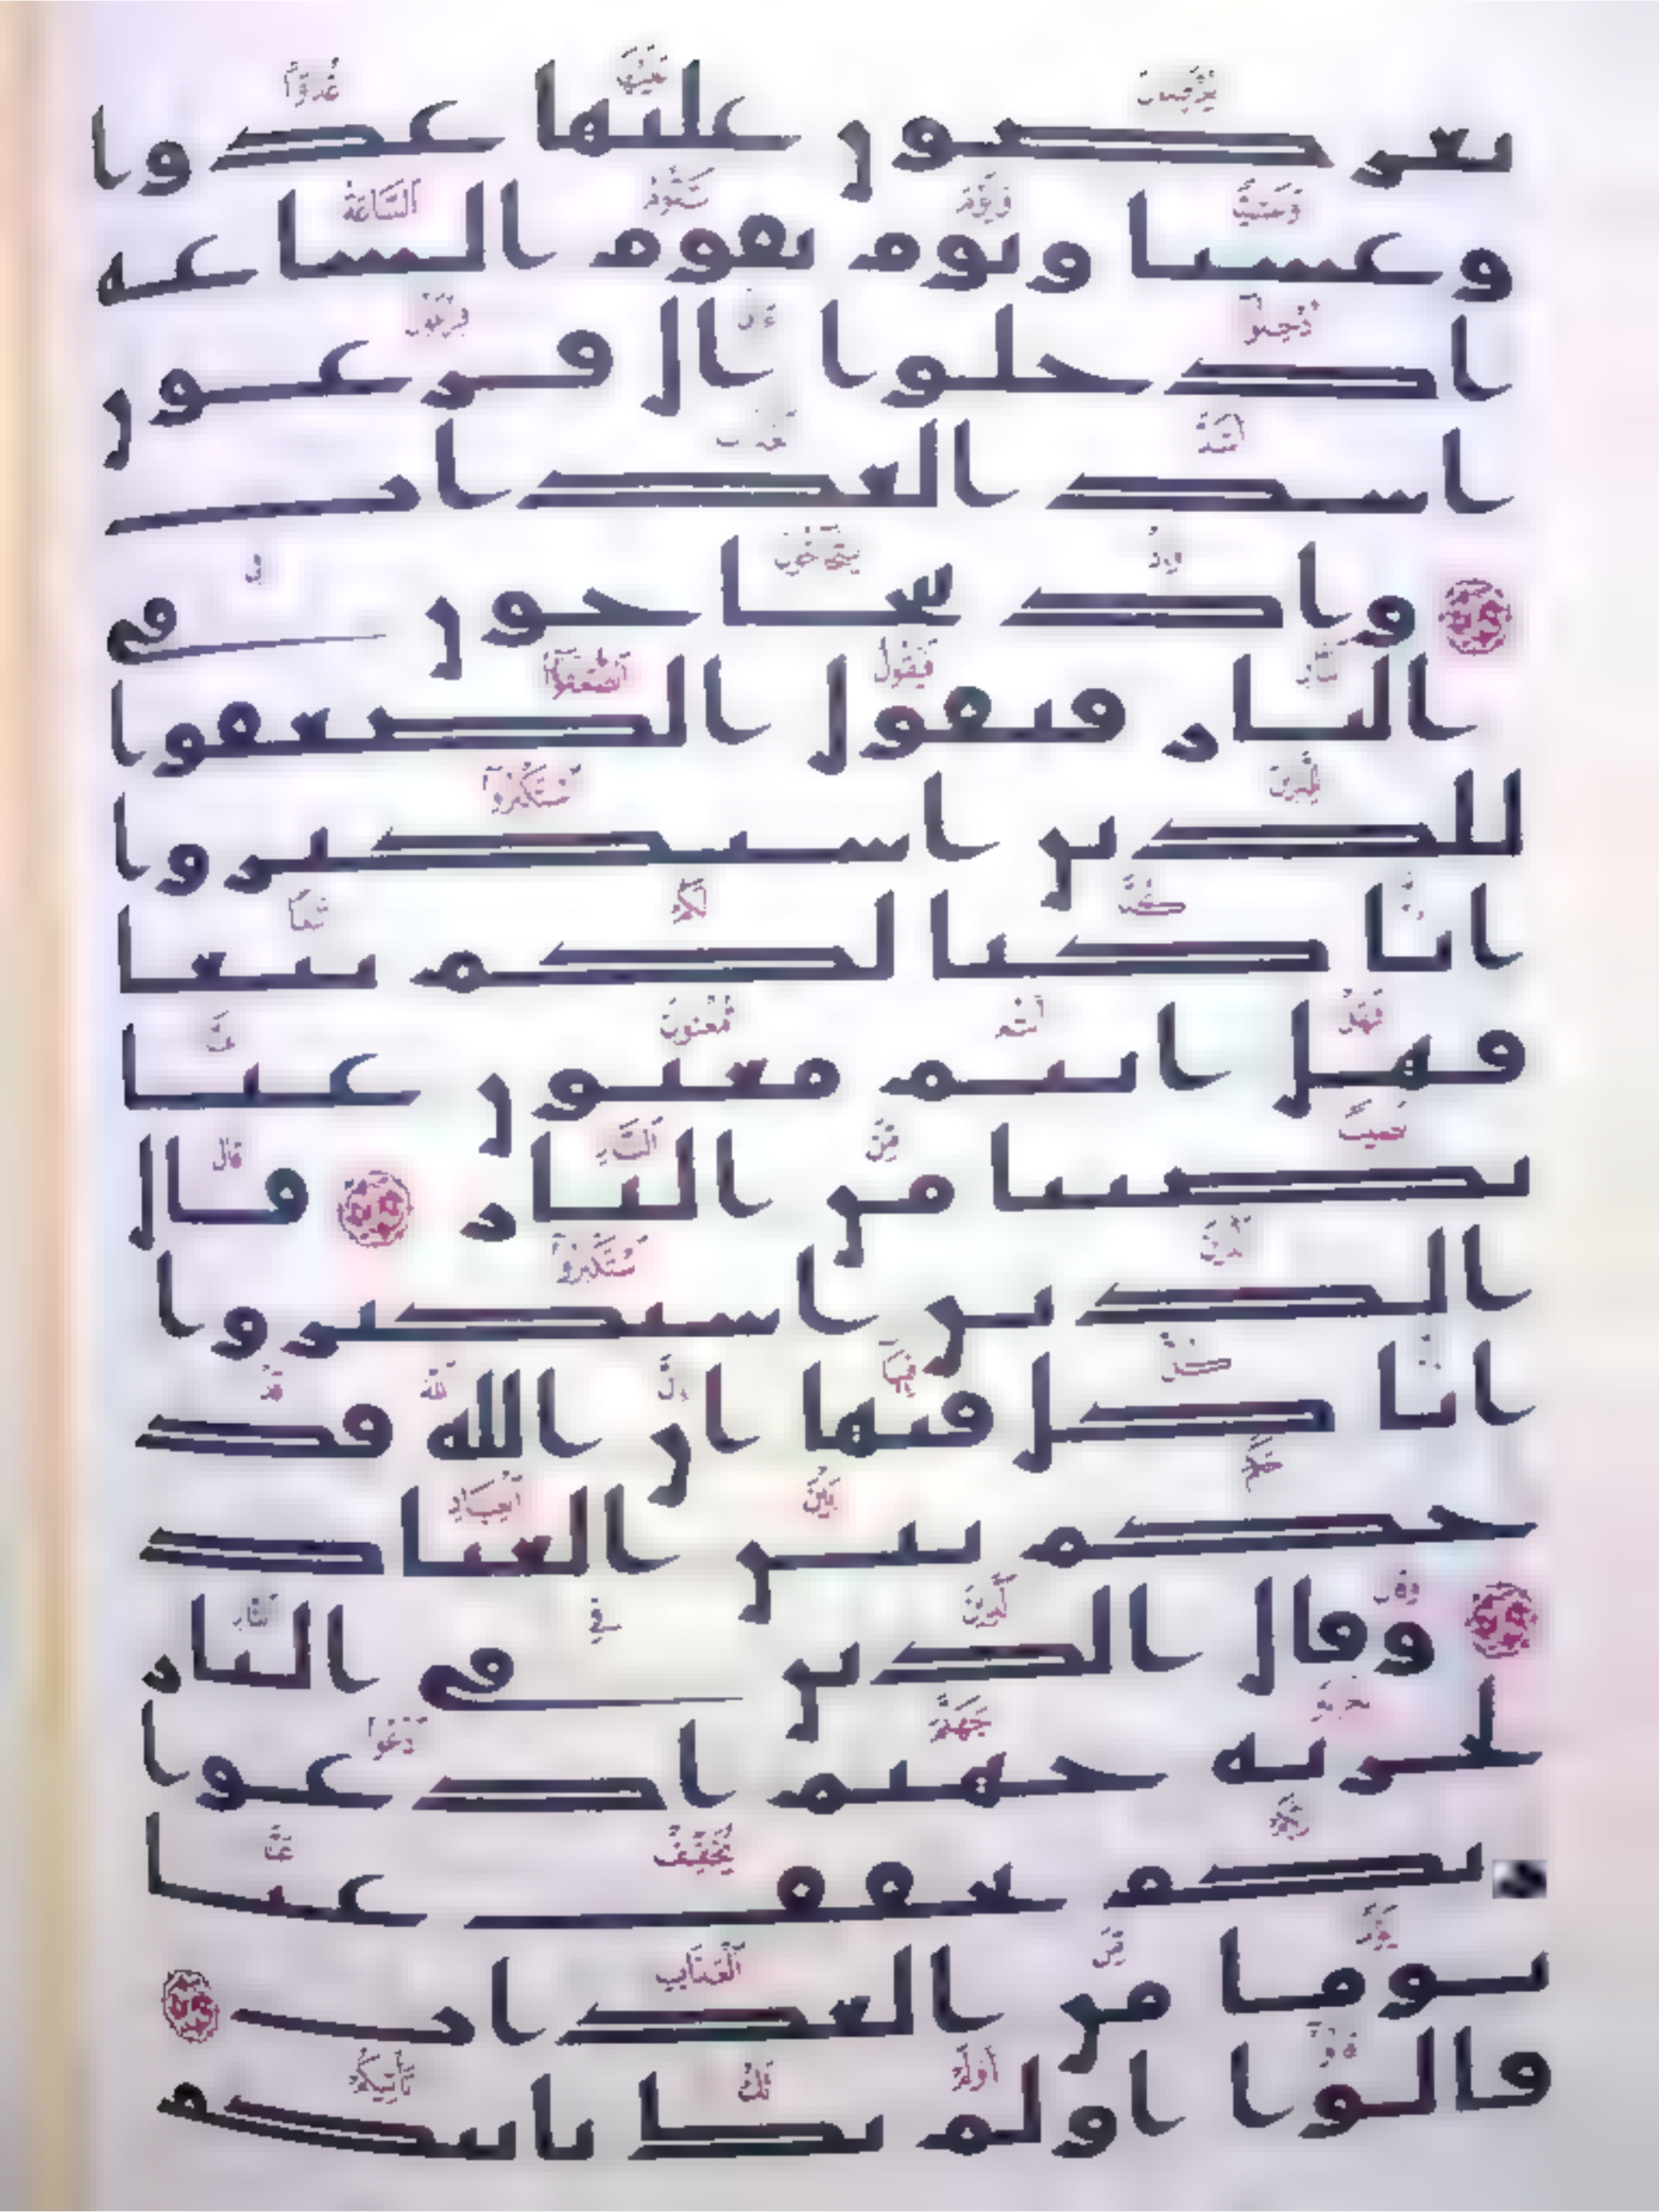 يعرضون عليها غدوا
وعشيا ويوم تقوم الساعة
ادخلوا ال فرعون
اشد العذاب
واذ يتحاجون في
النار فيقول الضعفوا
للذين استكبروا
انا كنا لكم تبعا
فهل انتم مغنون عنا
نصيبا من النار قال
الذين استكبروا
انا كل فيها ان الله قد
حكم بين العباد
وقال الذين في النار
لخزنة جهنم ادعوا
ربكم يخفف عنا
يوما من العذاب
قالوا اولم تك تاتيكم